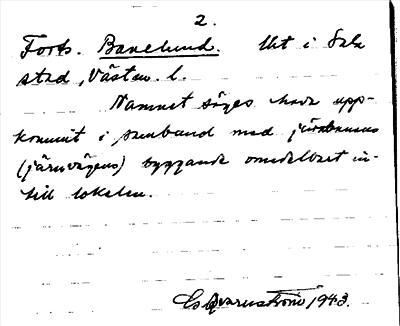 2.
Forts. Banelund. Utt i Sala
stad, Västm. l.
Namnet säges hava upp-
kommit i samband med järnbanans
(järnvägens) byggande omedelbart in-
till lokalen.
Qvarnström 1943.